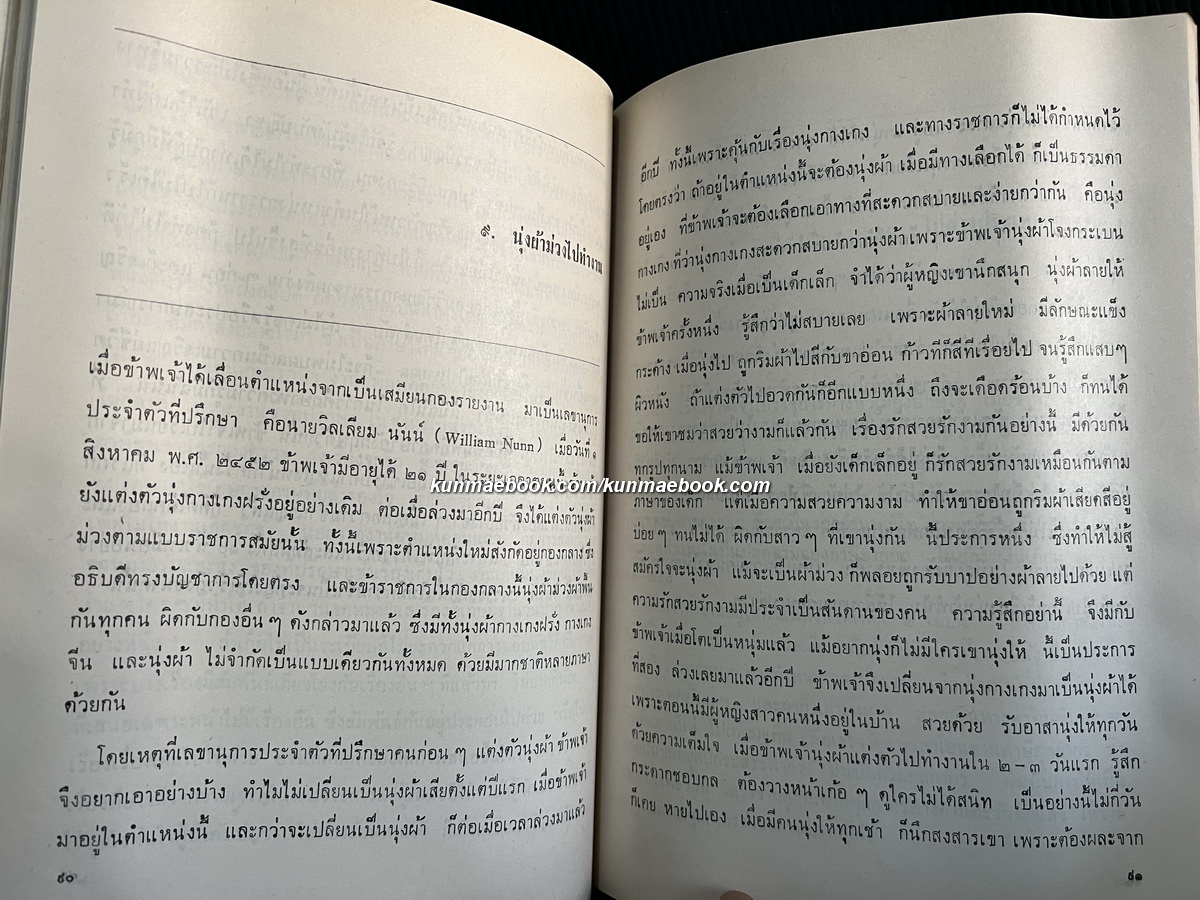 ๙. นุ่งผ้าม่วงไปทำงาน
เมื่อข้าพเจ้าได้เลื่อนตำแหน่งจากเป็นเสมียนกองรายงาน มาเป็นเลขานุการ
ประจำตัวที่ปรึกษา คือนายวิลเลียม นันน์ (William Nunn) เมื่อวันที่ ๑
สิงหาคม พ.ศ. ๒๔๕๒ ข้าพเจ้ามีอายุได้ ๒๑ ปี ในระยะ
ยังแต่งตัวนุ่งกางเกงฝรั่งอยู่อย่างเดิม ต่อเมื่อล่วงมาอีกปี จึงได้แต่งตัวนุ่งผ้า
ม่วงตามแบบราชการสมัยนั้น ทั้งนี้เพราะตำแหน่งใหม่สังกัดอยู่กองกลาง ซึ่ง
อธิบดีทรงบัญชาการโดยตรง และข้าราชการในกองกลางนี้นุ่งผ้าม่วงผ้าพื้น
กันทุกคน ผิดกับกองอื่น ๆ ดังกล่าวมาแล้ว ซึ่งมีทั้งนุ่งผ้ากางเกงฝรั่ง กางเกง
จีน และนุ่งผ้า ไม่จำกัดเป็นแบบเดียวกันทั้งหมด ด้วยมีมากชาติหลายภาษา
ด้วยกัน
โดยเหตุที่เลขานุการประจำตัวที่ปรึกษาคนก่อน ๆ แต่งตัวนุ่งผ้า ข้าพเจ้า
จึงอยากเอาอย่างบ้าง ทำไมไม่เปลี่ยนเป็นนุ่งผ้าเสียตั้งแต่ปีแรก เมื่อข้าพเจ้า
มาอยู่ในตำแหน่งนี้ และกว่าจะเปลี่ยนเป็นนุ่งผ้า ก็ต่อเมื่อเวลาล่วงมาแล้ว
๙๐
อีกปี ทั้งนี้เพราะคุ้นกับเรื่องนุ่งกางเกง และทางราชการก็ไม่ได้กำหนดไว้
โดยตรงว่า ถ้าอยู่ในตำแหน่งนี้จะต้องนุ่งผ้า เมื่อมีทางเลือกได้ ก็เป็นธรรมดา
อยู่เอง ที่ข้าพเจ้าจะต้องเลือกเอาทางที่สะดวกสบายและง่ายกว่ากัน คือนุ่ง
กางเกง ที่ว่านุ่งกางเกงสะดวกสบายกว่านุ่งผ้า เพราะข้าพเจ้านุ่งผ้าโจงกระเบน
ไม่เป็น ความจริงเมื่อเป็นเด็กเล็ก จำได้ว่าผู้หญิงเขานึกสนุก นุ่งผ้าลายให้
ข้าพเจ้าครั้งหนึ่ง รู้สึกว่าไม่สบายเลย เพราะผ้าลายใหม่ มีลักษณะแข็ง
กระด้าง เมื่อนุ่งไป ถูกริมผ้าไปสีกับขาอ่อน ก้าวทีก็สีทีเรื่อยไป จนรู้สึกแสบๆ
ผิวหนัง ถ้าแต่งตัวไปอวดกันก็อีกแบบหนึ่ง ถึงจะเดือดร้อนบ้าง ก็ทนได้
ขอให้เขาชมว่าสวยว่างามก็แล้วกัน เรื่องรักสวยรักงามกันอย่างนี้ มีด้วยกัน
ทุกรูปทุกนาม แม้ข้าพเจ้า เมื่อยังเด็กเล็กอยู่ ก็รักสวยรักงามเหมือนกันตาม
ภาษาของเด็ก แต่เมื่อความสวยความงาม ทำให้ขาอ่อนถูกริมผ้าเสียดสีอยู่
บ่อย ๆ ทนไม่ได้ ผิดกับสาว ๆ ที่เขานุ่งกัน นี้ประการหนึ่ง ซึ่งทำให้ไม่สู้
สมัครใจจะนุ่งผ้า แม้จะเป็นผ้าม่วง ก็พลอยถูกรับบาปอย่างผ้าลายไปด้วย แต่
ความรักสวยรักงามมีประจำเป็นสันดานของคน ความรู้สึกอย่านี้ จึงมีกับ
ข้าพเจ้าเมื่อโตเป็นหนุ่มแล้ว แม้อยากนุ่งก็ไม่มีใครเขานุ่งให้ นี้เป็นประการ
ที่สอง ล่วงเลยมาแล้วอีกปี ข้าพเจ้าจึงเปลี่ยนจากนุ่งกางเกงมาเป็นนุ่งผ้าได้
เพราะตอนนี้มีผู้หญิงสาวคนหนึ่งอยู่ในบ้าน สวยด้วย รับอาสานุ่งให้ทุกวัน
ด้วยความเต็มใจ เมื่อข้าพเจ้านุ่งผ้าแต่งตัวไปทำงานใน ๒ – ๓ วันแรก รู้สึก
กระดากชอบกล ต้องวางหน้าเก้อ ๆ ดูใครไม่ได้สนิท เป็นอย่างนี้ไม่กี่วัน
ก็เคย หายไปเอง เมื่อมีคนนุ่งให้ทุกเช้า ก็นึกสงสารเขา เพราะต้องผละจาก
๙๑
kunmaebook.com/kunmaebook.com